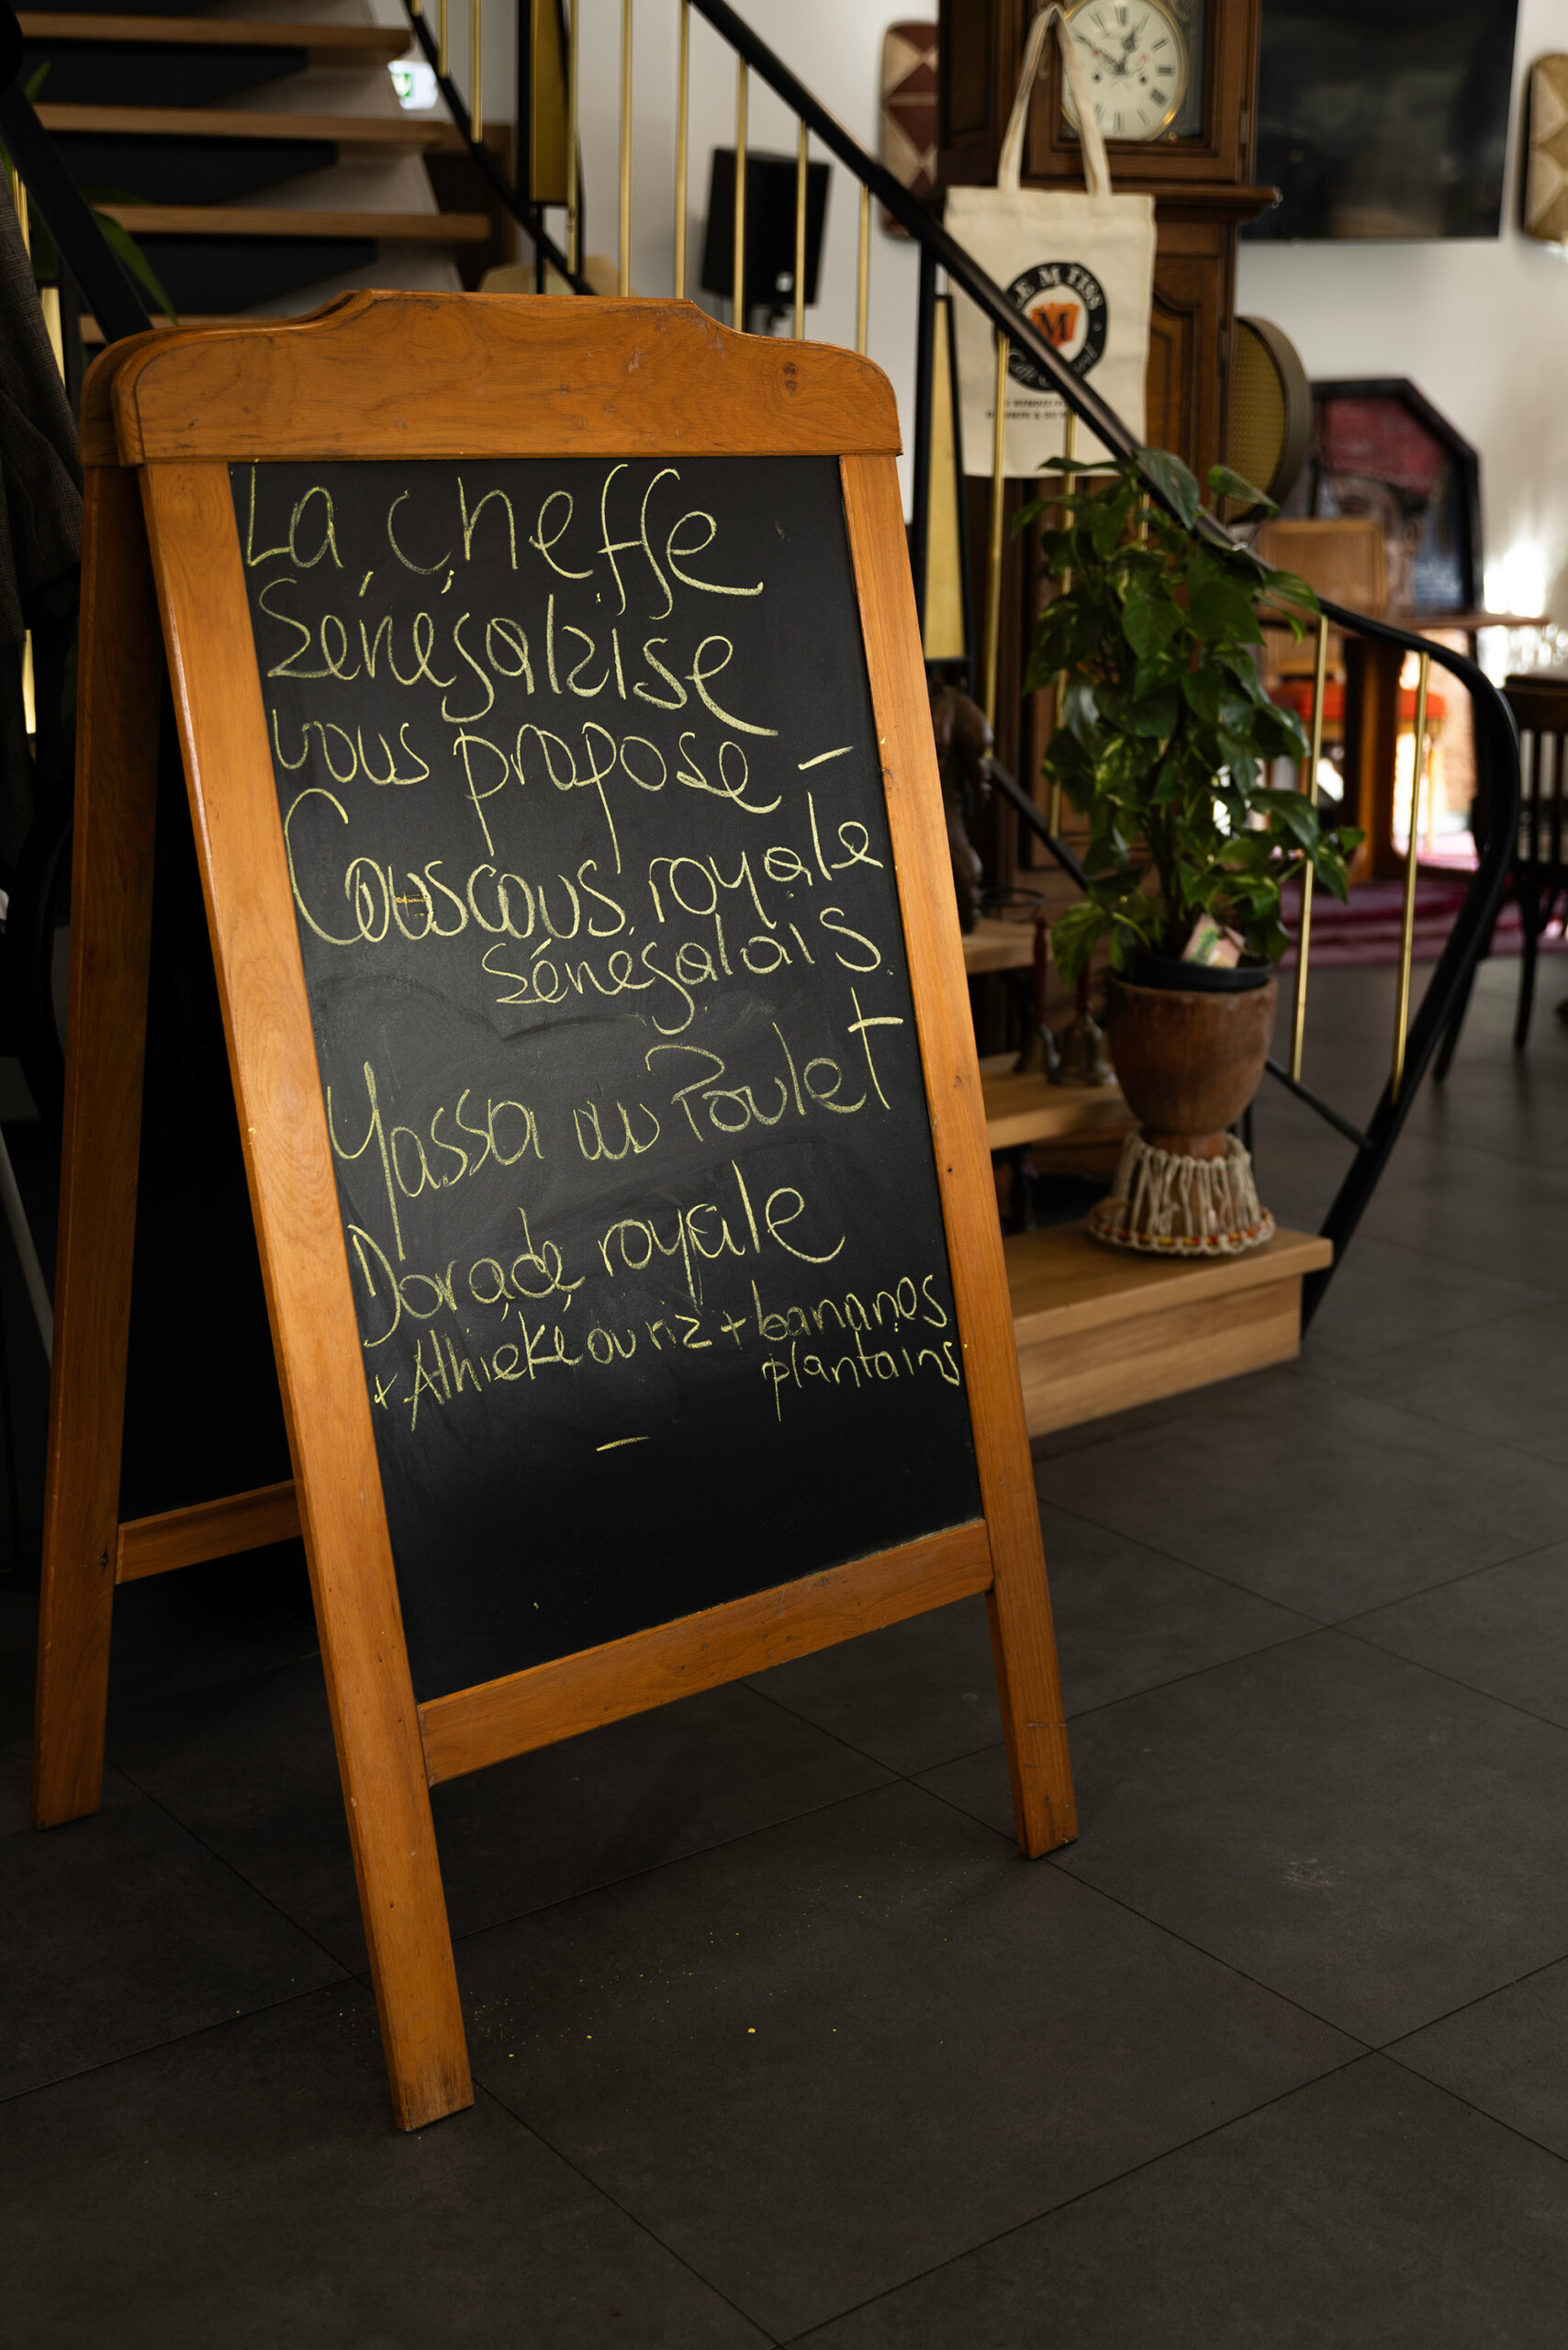 La cheffe
Sénégalaise
vous propose -
Couscous royale
Sénégalais
Yassa au Poulet
Dorade royale
+ Athiéké ou riz + bananes
plantains
-
LE M TISS
M